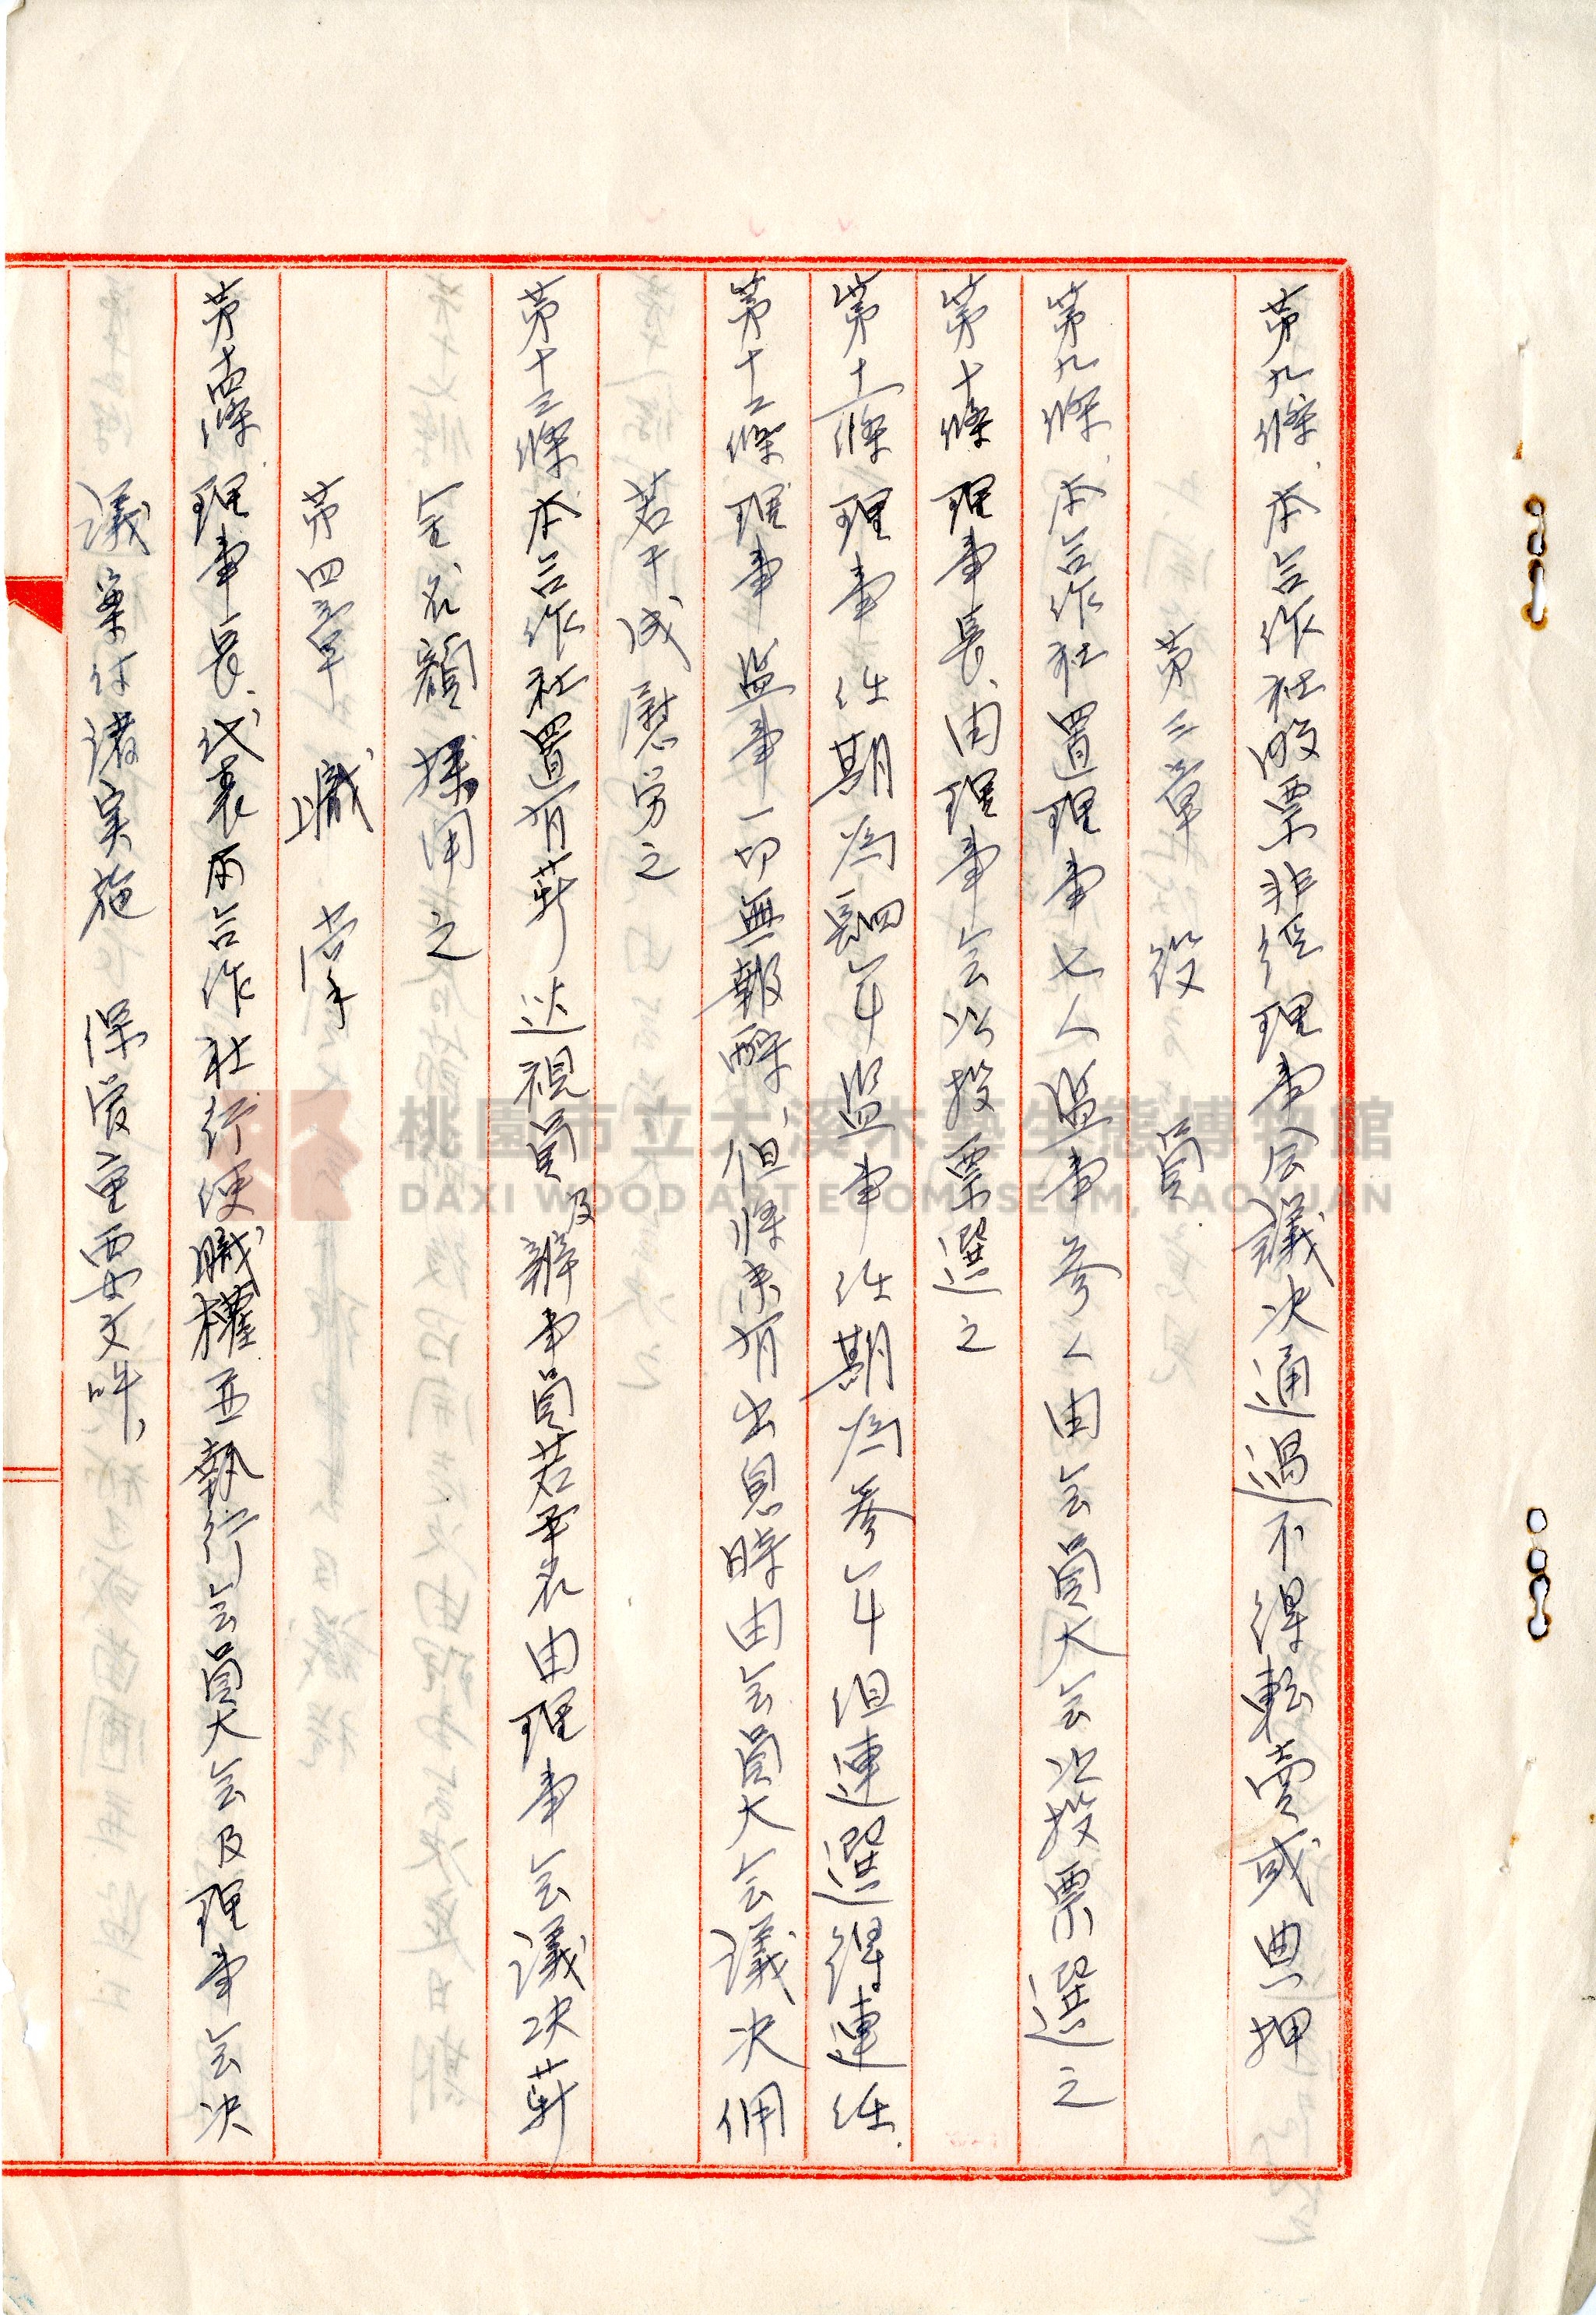 第九條、本合作社股票非經理事会議決通過不得転賣或典押
第三章 役 員
第九條、本合作社置理事七人監事參人由会員大会以投票選之
第十條 理事長、由理事会以投票選之
第十一條 理事任期為四年監事任期為參年但連選得連任.
第十二條 理事監事一切無報酬、但將來有出息時由会員大会議決佣
若干成慰労之
第十三條 本合作社置有薪 視員及辦事員若干名由理事会議決薪
金名額採用之
第四章 職 掌
第十四條 理事長、代表本合作社行使職權並執行会員大会及理事会決
議案付諸実施 保管重要文件、
桃園市立大溪木藝生態博物館
DAXI WOOD ART ECOMUSEUM, TAOYUAN